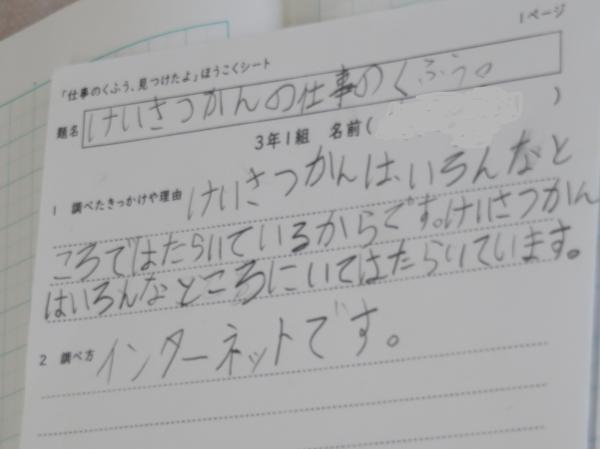 1ページ
「仕事のくふう、見つけたよ」ほうこくシート
題名 けいさつかんの仕事のくふう。
3年1組 名前( )
1 調べたきっかけや理由 けいさつかんは、いろんなと
ころではたらいているからです。けいさつかん
はいろんなところにいてはたらいています。
2 調べ方 インターネットです。